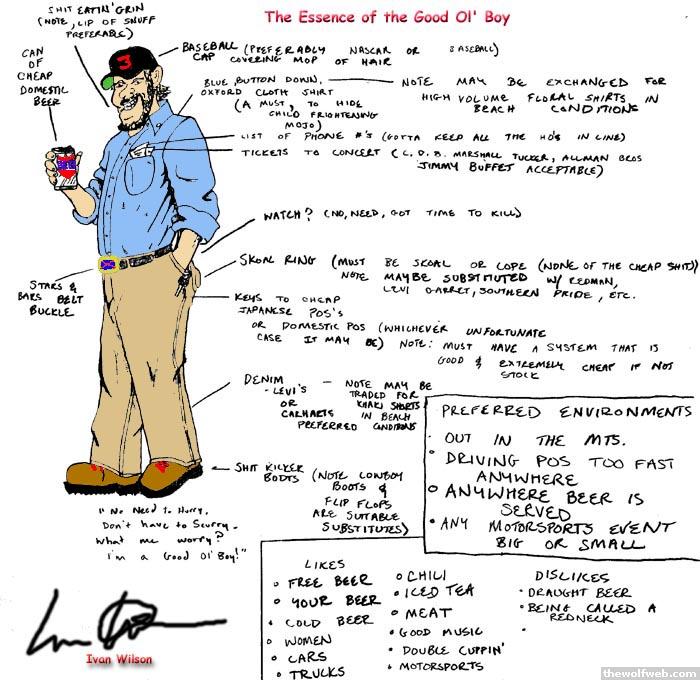 The Essence of the Good Ol' Boy
SHIT EATIN' GRIN
(NOTE, LIP OF SNUFF
PREFERABLE)
CAN
OF
CHEAP
DOMESTIC
BEER
3
BASEBALL (PREFERABLY NASCAR OR BASEBALL)
CAP COVERING MOP OF HAIR
BLUE, BUTTON DOWN,
OXFORD CLOTH SHIRT
(A MUST, TO HIDE
CHILD FRIGHTENING
MOJO)
NOTE MAY BE EXCHANGED FOR
HIGH VOLUME FLORAL SHIRTS IN
BEACH CONDITIONS
LIST OF PHONE #'S (GOTTA KEEP ALL THE HO'S IN LINE)
TICKETS TO CONCERT (C.D.B. MARSHALL TUCKER, ALLMAN BROS
JIMMY BUFFET ACCEPTABLE)
WATCH? (NO, NEED, GOT TIME TO KILL)
SKOAL RING (MUST BE SKOAL OR COPE (NONE OF THE CHEAP SHIT)
NOTE MAYBE SUBSTITUTED W/ REDMAN,
LEVI GARRET, SOUTHERN PRIDE, ETC.
STARS &
BARS BELT
BUCKLE
KEYS TO CHEAP
JAPANESE POS'S
OR DOMESTIC POS (WHICHEVER UNFORTUNATE
CASE IT MAY BE) NOTE: MUST HAVE A SYSTEM THAT IS
GOOD & EXTREMELY CHEAP IF NOT
STOCK
DENIM
- LEVI'S
OR
CARHARTS
- NOTE MAY BE
TRADED FOR
KHAKI SHORTS
IN BEACH
PREFERRED CONDITIONS
SHIT KICKER
BOOTS (NOTE COWBOY
BOOTS &
FLIP FLOPS
ARE SUITABLE
SUBSTITUTES)
"No Need To Hurry,
Don't have to Scurry.
What me worry?
I'm a Good Ol' Boy!"
PREFERRED ENVIRONMENTS
• OUT IN THE MTS.
• DRIVING POS TOO FAST
ANYWHERE
• ANYWHERE BEER IS
SERVED
• ANY MOTORSPORTS EVENT
BIG OR SMALL
LIKES
• FREE BEER
• YOUR BEER
• COLD BEER
• WOMEN
• CARS
• TRUCKS
• CHILI
• ICED TEA
• MEAT
• GOOD MUSIC
• DOUBLE CUPPIN'
• MOTORSPORTS
DISLIKES
• DRAUGHT BEER
• BEING CALLED A
REDNECK
•
Ivan Wilson
thewolfweb.com